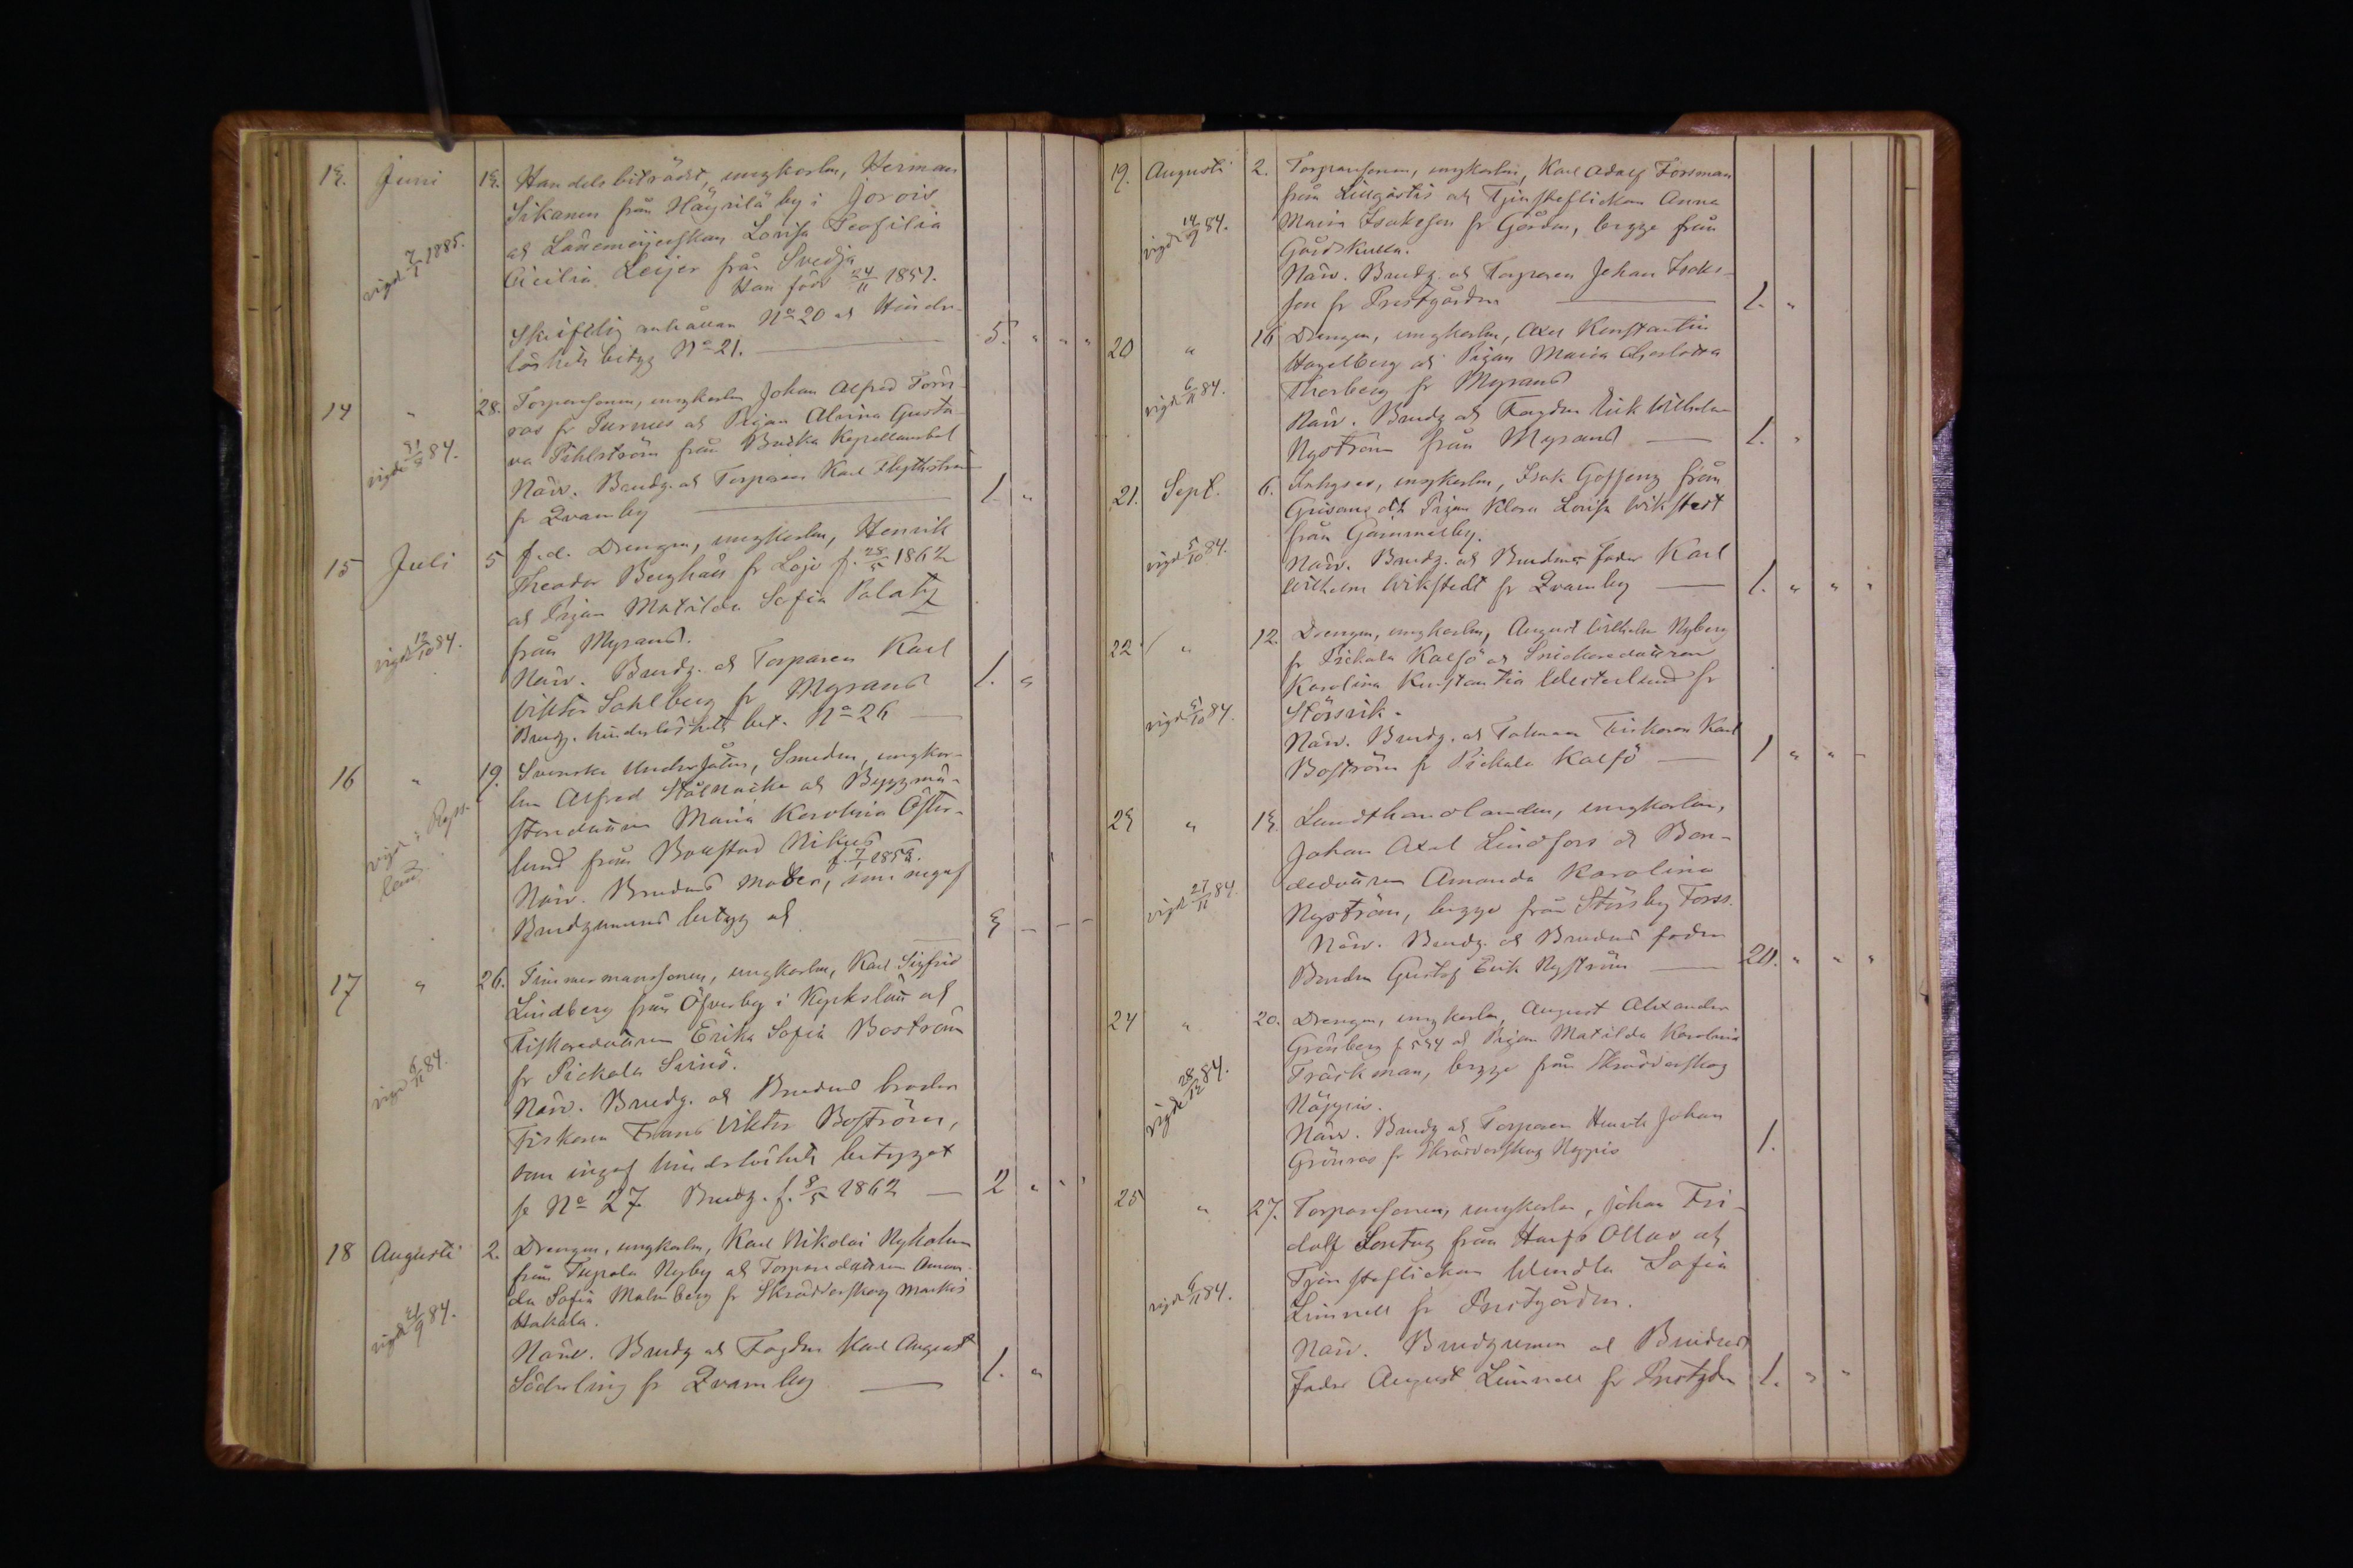 13. Juni 13. Handelsbiträdet, ungkarlen, Herman
Sikanen från Häyrilä by i Jorois
och Länemejerskan Lovisa Teofilia
vigd 7/1 1885.
Cicilia Leijer från Svedja
Han född 24/11 1857.
Skriftlig anhållan No 20 och Hinder-
löshets betyg No 21. — 5. " " "
14 " 28. Torparsonen, ungkarlen Johan Alfred Törn-
ros fr Purnus och Pigan Alvina Gusta-
va Pihlström från Kapellansbol
vigde 31/8 84.
Närv. Brudg. och Torparen Karl Flythström
fr Qvarnby — 1. "
15 Juli 5 f.d. Drengen, ungkarlen, Henrik
Theodor Berghäll fr Lojo f. 28/5 1862
och Pigan Matilda Sofia Palatz
från Mysans.
vigde 12/10 84.
Närv. Brudg. och Torparen Karl
Viktor Sahlberg fr Mysans 1. "
Brudg. hinderlöshets bet. No 26 —
16 " 19. Svenske Undersåten, Smeden, ungkar-
len Alfred Stålnacke och Byggmä-
staredottren Maria Karolina Öster-
lund från Bollstad Nikus
vigde i Ryss-
land
f. 7/1 1859.
Närv. Brudens Moder, som ingaf
Brudgummens betyg och 3 - - -
17 " 26. Timmermanssonen, ungkarlen, Karl Sigfrid
Lindberg från Öfverby i Kyrkslätt och
Fiskaredottren Erika Sofia Boström
fr Pickala Svinö.
vigde 6/11 84.
Närv. Brudg. och Brudens broder
Fiskaren Frans Viktor Boström,
som ingaf hinderlöshets betyget
se No 27 Brudg. f. 8/5 1862 — 2 " " "
18 Augusti 2. Drengen, ungkarlen, Karl Nikolai Nyholm
från Nyby och Torparedottren Aman-
da Sofia Malmberg fr Skräddarskog Markis
Hakala.
vigde 21/9 84.
Närv. Brudg och Fogden Karl August
Söderling fr Qvarnby — 1. "
19. Augusti 2. Torparsonen, ungkarlen, Karl Adolf Forsman
från Lillgårds och Tjensteflickan Anna
Maria Isaksson fr Gården, begge från
Gårdskulla.
vigde 14/9 84.
Närv. Brudg. och Torparen Johan Isaks-
son fr Prestgården — 1. "
20 " 16 Drengen, ungkarlen, Axel Konstantin
Hagelberg och Pigan Maria Charlotta
Thorberg fr Mysans
vigde 6/11 84.
Närv. Brudg och Fogden Erik Wilhelm
Nyström från Mysans — 1. "
21. Sept. 6. Inhyses, ungkarlen, Isak Gossenz från
Grisans och Pigan Klara Lovisa Wikstedt
från Gammelby.
vigde 5/10 84.
Närv. Brudg. och Brudens fader Karl
Wilhelm Wikstedt fr Qvarnby — 1. " " "
22 " 12. Drengen, ungkarlen, August Wilhelm Nyberg
fr Pickala Kalfö och Snickaredottren
Karolina Konstantia Westerlund fr
Störsvik.
vigde 5/10 84.
Närv. Brudg. och Fiskaren Karl
Boström fr Pickala Kalfö — 1 " " -
23 " 13. Landthandlanden, ungkarlen,
Johan Axel Lindfors och Bon-
dedottren Amanda Karolina
Nyström, begge från Störsby Forss.
vigde 27/11 84.
Närv. Brudg. och Brudens fader
Bonden Gustaf Erik Nyström — 20. " " "
24 " 20. Drengen, ungkarlen, August Alexander
Grönberg och Pigan Matilda Karolina
Träskman, begge från Skräddarskog
Näppis.
vigde 28/12 84.
Närv. Brudg och Torparen Henrik Johan
Grönros fr Skräddarskog Nyppis 1.
25 " 27. Torparsonen, ungkarlen, Johan Fri-
dolf Sontag från Harfs Ollas och
Tjensteflickan Wendla Sofia
Linnell fr Prestgården.
vigde 6/11 84.
Närv. Brudgummen och Brudens
fader August Linnell fr Prestgden 1. " "